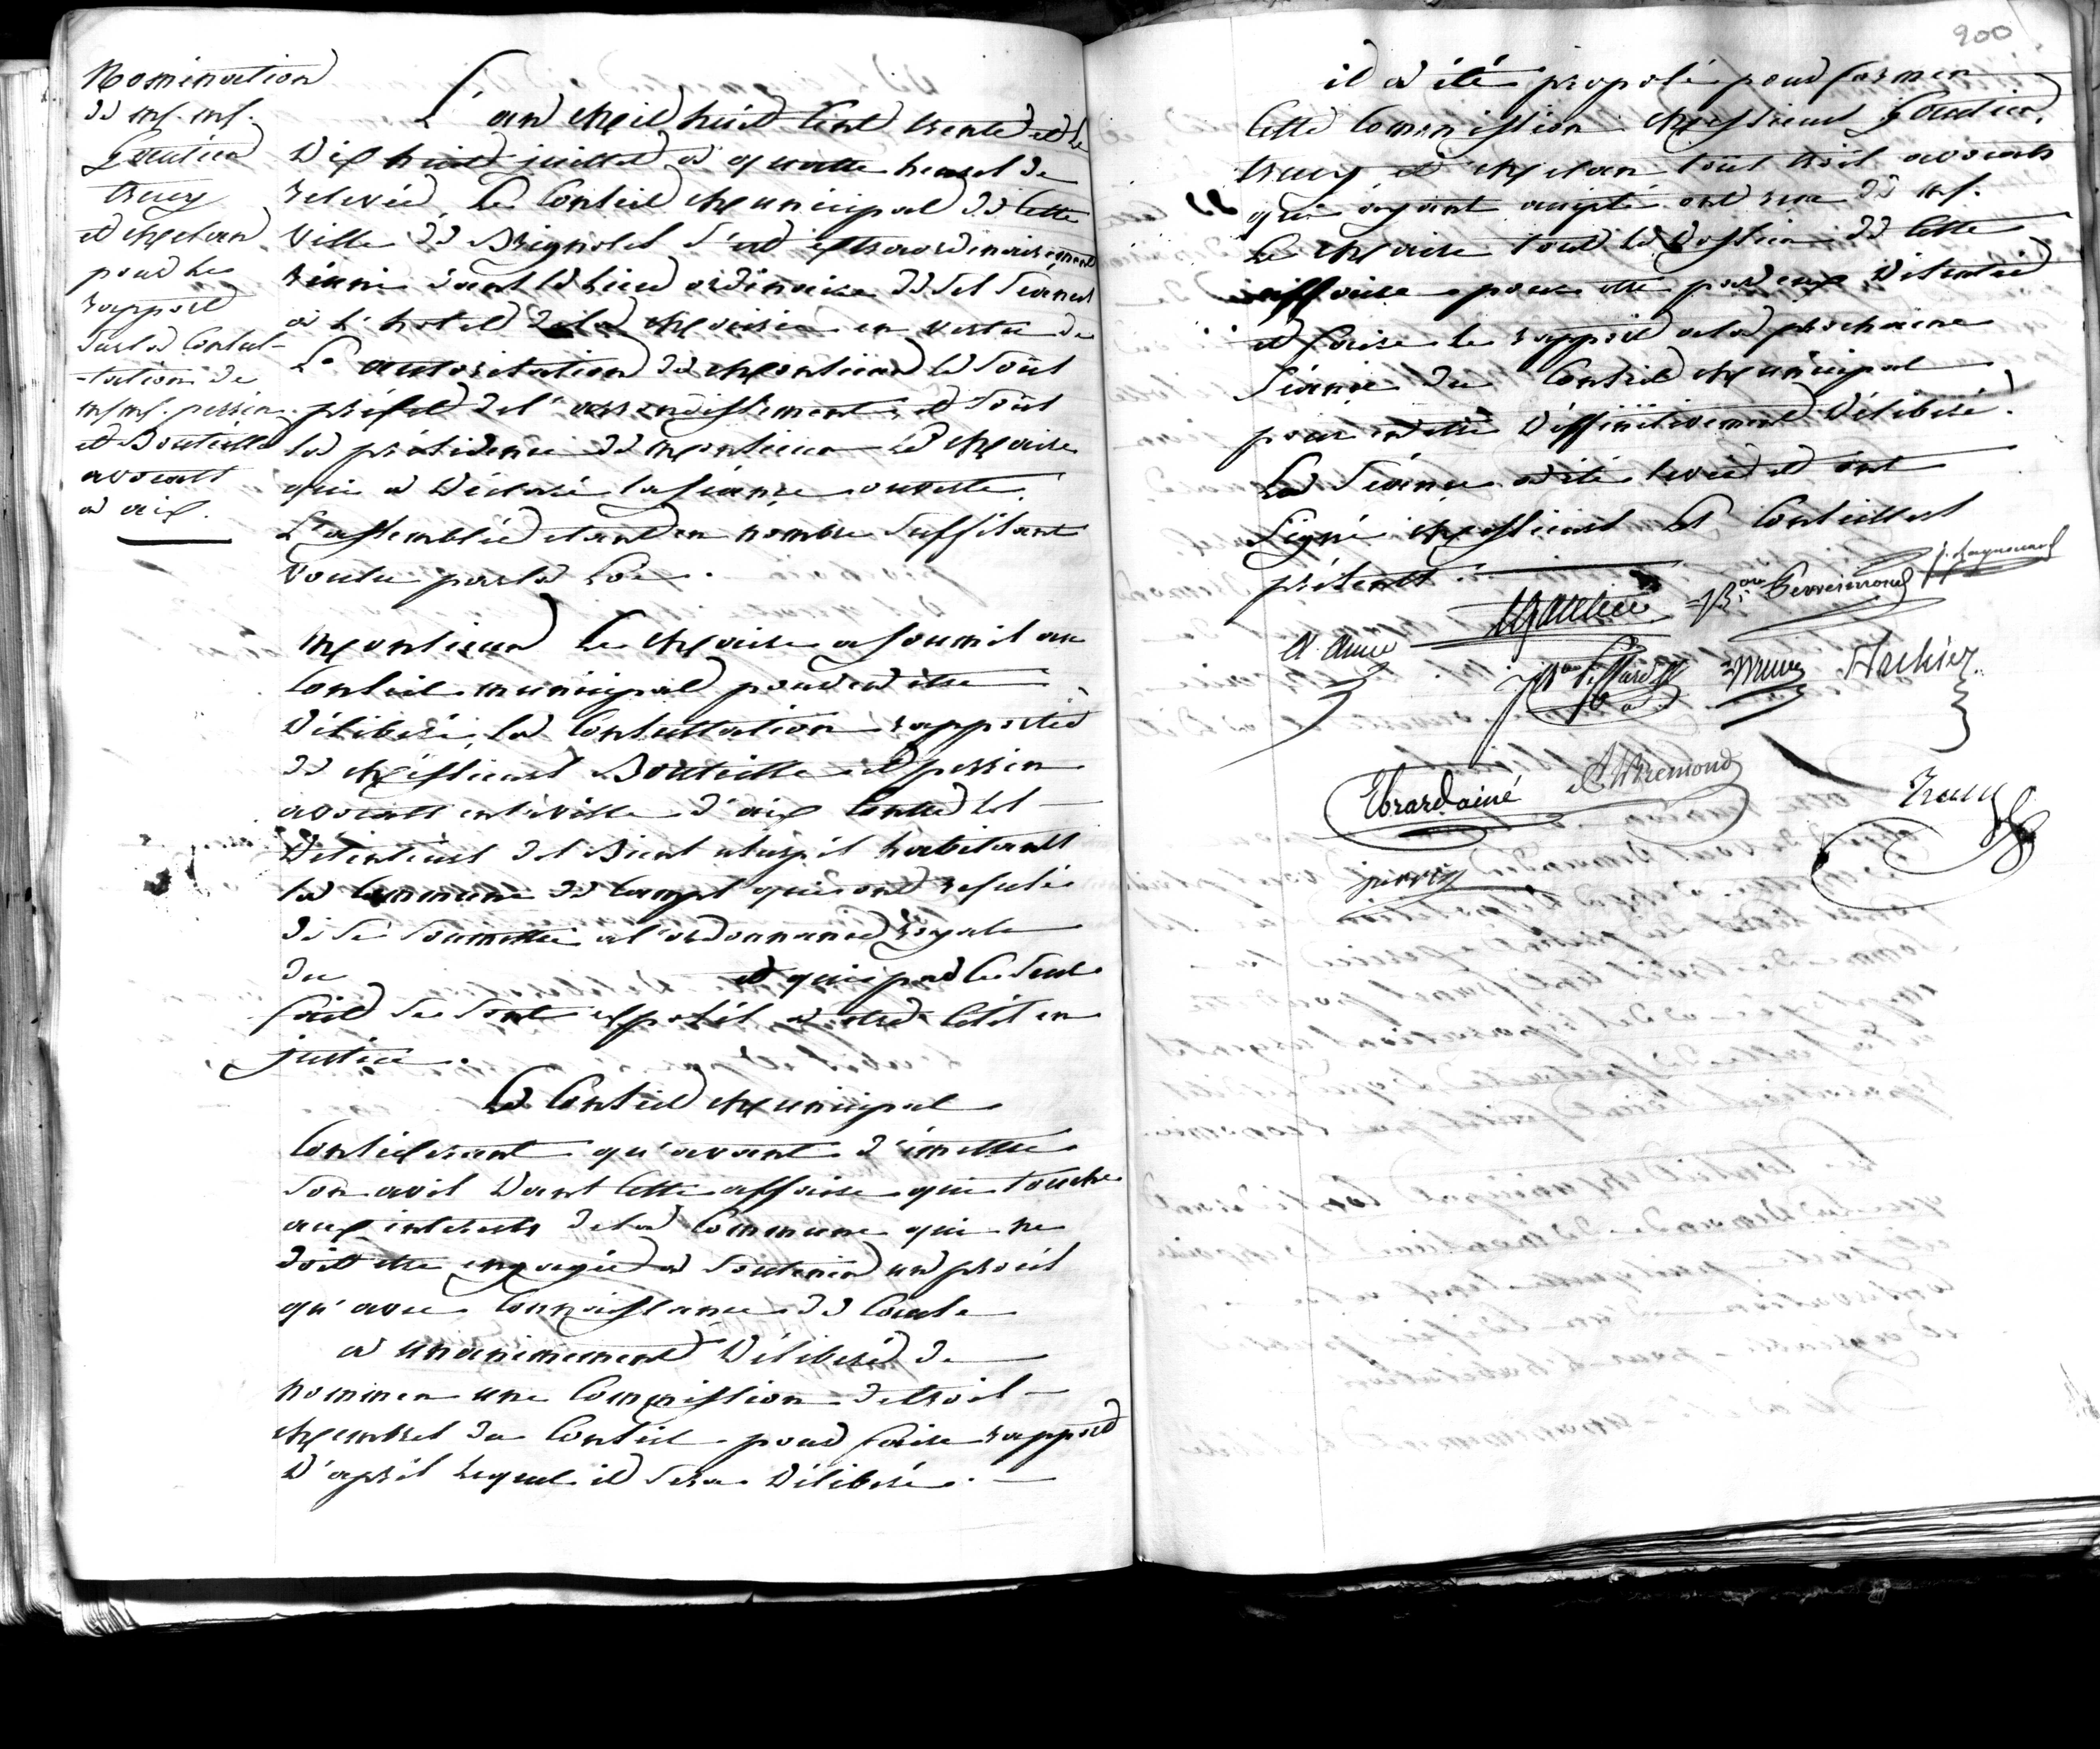 Nomination
de Mrs. Mrs.
Gautier
trucy
et Meian
pour le
rapport
sur la Consul-
-tation de
MM. perrin
et Bouteille
avocats
a aix.
L'an Mil huit Cent trente et le
Dix huit juillet a quatre heures de
relevée, le Conseil Municipal de cette
Ville de Brignoles s'est extraordinairement
réuni dans le lieu ordinaire de ses seances
a l'hotel de la Mairie en vertu de
L'autorisation de Monsieur le sous
préfet de l'arrondissement, et sous
la présidence de Monsieur le Maire
qui a Déclaré la séance ouverte.
L'assemblée etant en nombre suffisant
voulu par la Loi.
Monsieur le Maire a soumis au
Conseil municipal pour en etre
Délibéré, la Consultation rapportée
de Messieurs Bouteille et perrin
avocats en la ville d'aix contre les
Détenteurs des Biens usurpés habitants
la Commune de Camps qui ont refusé
de se soumettre a l'ordonnance Royale
du et qui par le seul
fait se sont exposés a etre cités en
justice.
Le Conseil Municipal
Considerant qu'avant d'émettre
son avis Dans cette affaire qui touche
aux interets de la Commune qui ne
doit etre engagée a soutenir un procès
qu'avec Connaissance de Cause
a unanimement Délibéré de
nommer une Commission de trois
Membres du Conseil pour faire rapport
D'après lequel il sera Délibéré.
200
il a été proposé pour former
Cette Commission Messieurs Gautier,
trucy et Meian tous trois avocats
qui ayant accepté ont reçu de Mr.
Le Maire tout le Dossier de Cette
affaire pour etre par eux Discutée
et faire le rapport a la prochaine
séance du Conseil Municipal
pour en etre Déffinitivement Délibéré.
La séance a été levée et ont
Signé Messieurs les Conseillers
présents.
J. Raynouard
Ebrard ainé
Bremond
perrin